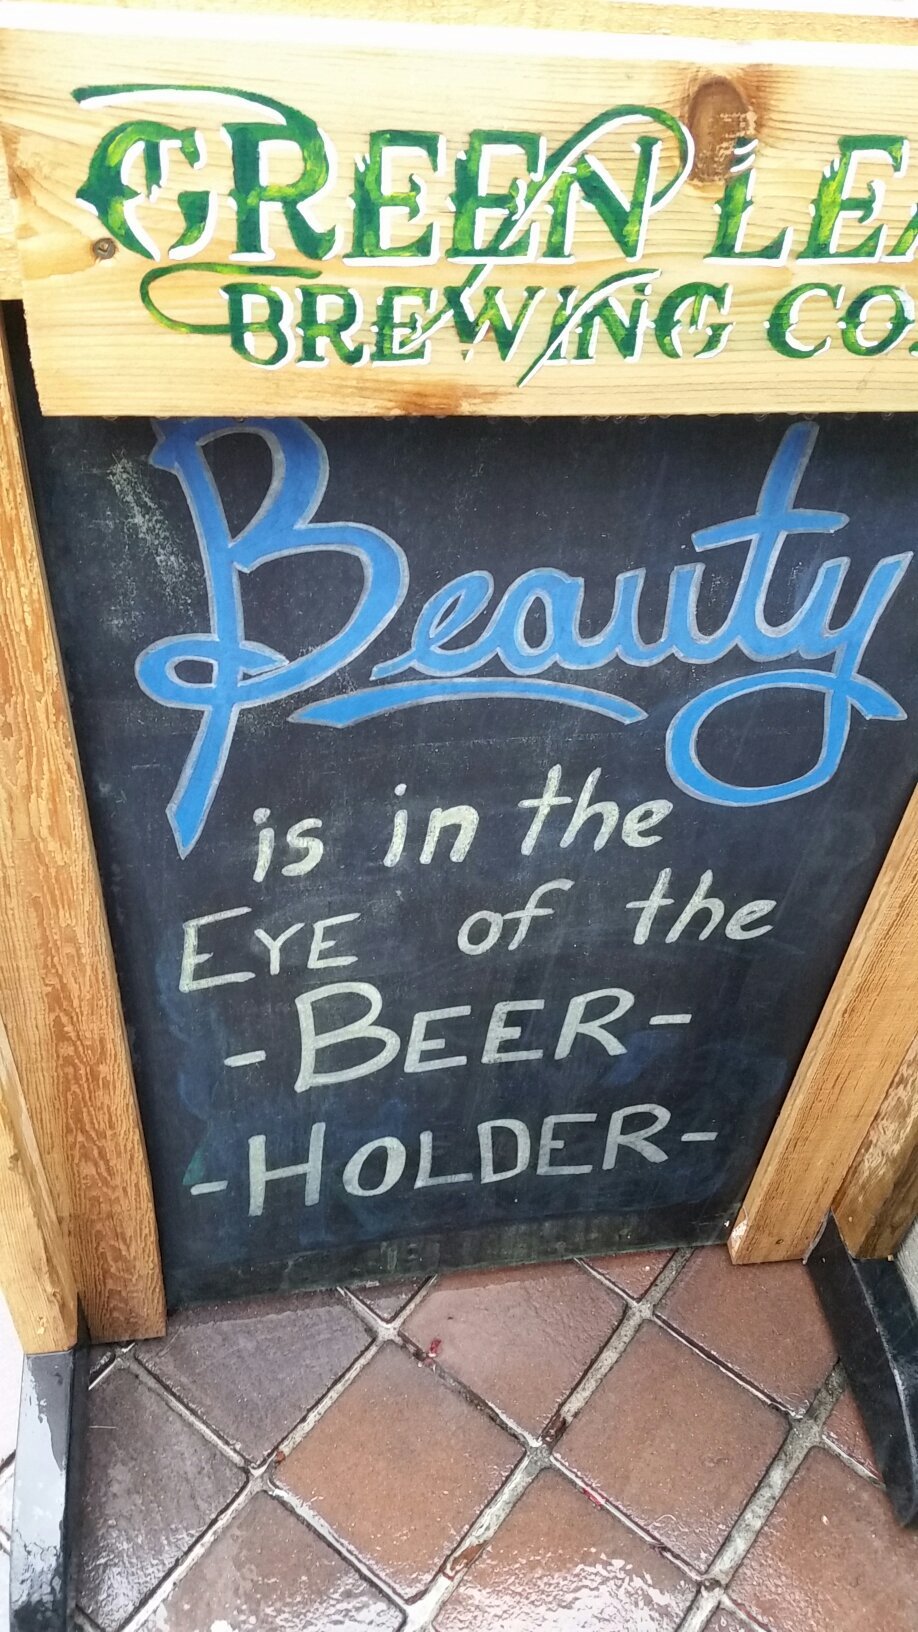 GREEN LEA
BREWING CO.
Beauty
is in the
EYE of the
-BEER-
-HOLDER-